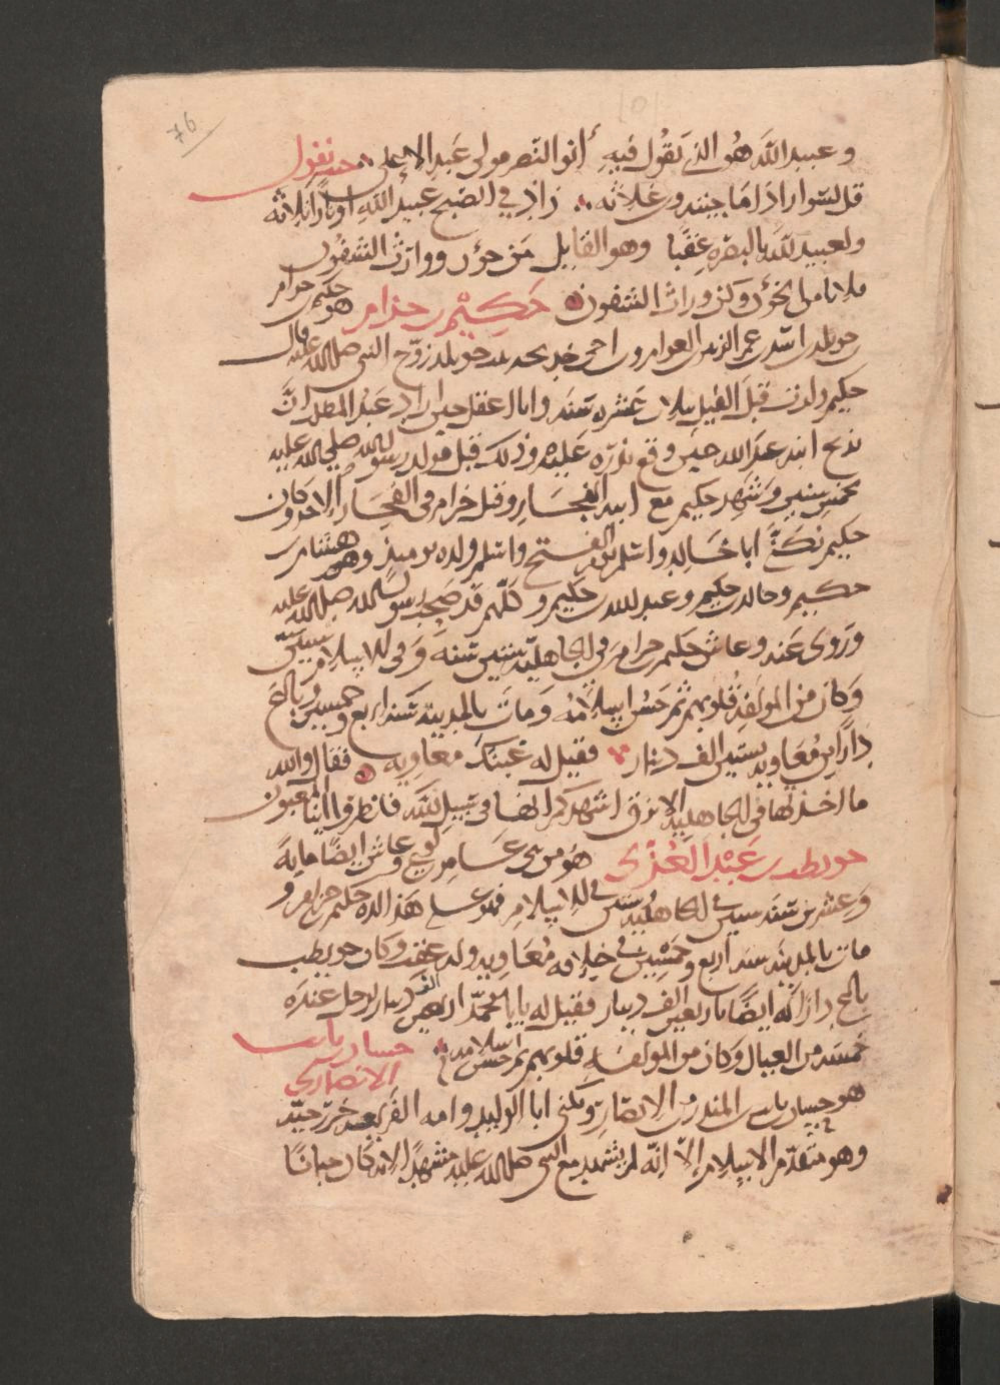 76
وعبيد الله هو الذي يقول فيه أبو النضر مولى عبد الاعلى حيث يقول
قل لسوار اذا ما جيته وعلاثه زاد في الصبح عبيد الله اوتارا ثلاثه
ولعبيد الله بالبصره عقبا وهو القايل
حكيم بن حزام هو حكيم بن حزام
بن خويلد بن اسد بن عم الزبير بن العوام وبن اخي خديجه بنت خويلد زوج النبي صلى الله عليه قال
حكيم ولدت قبل الفيل بثلاث عشره سنه وانا اعقل حين اراد عبد المطلب ان
يذبح ابنه عبد الله حين وقع نذره عليه وذلك قبل مولد رسول الله صلى الله عليه
بخمس سنين وشهد حكيم مع ابيه الفجار وقتل حزام في الفجار الاخر وكان
حكيم يكنى ابا خالد واسلم يوم الفتح واسلم ولده يوميذ وهم هشام بن
حكيم وخالد بن حكيم وعبد الله بن حكيم وكلهم قد صحب رسول الله صلى الله عليه
وروى عنه وعاش حكيم بن حزام في الجاهلية ستين سنه وفي الاسلام ستين
وكان من المولفة قلوبهم ثم حسن اسلامه ومات بالمدينة سنه اربع وخمسين وباع
دارا من معاويه بستين الف دينار فقيل له غبنك معاويه فقال والله
ما اخذتها في الجاهلية الا بزق اشهدكم انها في سبيل الله فانظروا اينا المغبون
حويطب بن عبد العزى هو من بني عامر بن لوي وعاش ايضا مايه
وعشرين سنه ستين في الجاهلية وستين في الاسلام
مات بالمدينه سنه اربع وخمسين في خلافه معاويه وله عقب وكان حويطب
باع دارا له ايضا باربعين الف دينار فقيل له يا با محمد اربعين الف دينار لرجل عنده
خمسه من العيال وكان من المولفة قلوبهم ثم حسن اسلامه حسان بن ثابت
الانصاري
هو حسان بن ثابت بن المنذر من الانصار ويكنى ابا الوليد وامه الفريعه خزرجيه
وهو متقدم الاسلام إلا انه لم يشهد مع النبي صلى الله عليه مشهدا لانه كان جبانا